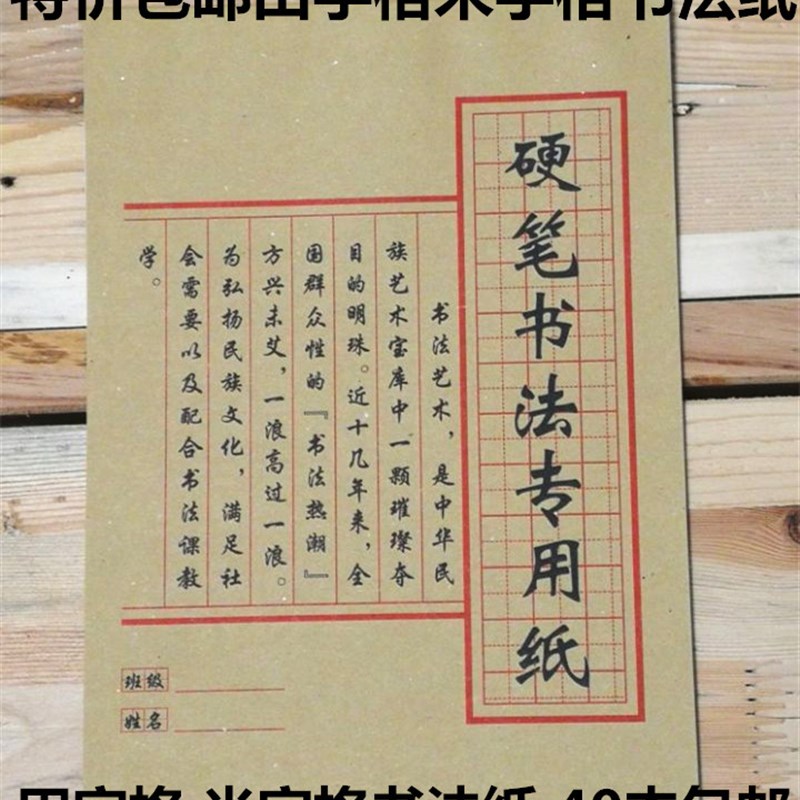 特价包邮田字格米字格书法纸
硬笔书法专用纸
书法艺术，是中华民
族艺术宝库中一颗璀璨夺
目的明珠。近十几年来，全
国群众性的『书法热潮』
方兴未艾，一浪高过一浪。
为弘扬民族文化，满足社
会需要以及配合书法课教
学。
班级
姓名
田字格 米字格书法纸 40本包邮